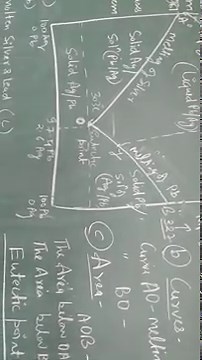 (b) Curves -
Curve AO - melting
" BO -
(c) Area -
AOB -
The Area below OA
The Area below B
Eutectic point
melting of silver
(Liquid Pb/Ag)
Solid Ag
Sol (Pb/Ag)
303°C
O
Eutectic
point
melting Pb
Solid Pb
Solid Ag/Pb
100% Ag
0% Pb
97.4% Pb
2.6% Ag
100% Pb
0% Ag
molten Silver & lead (L)